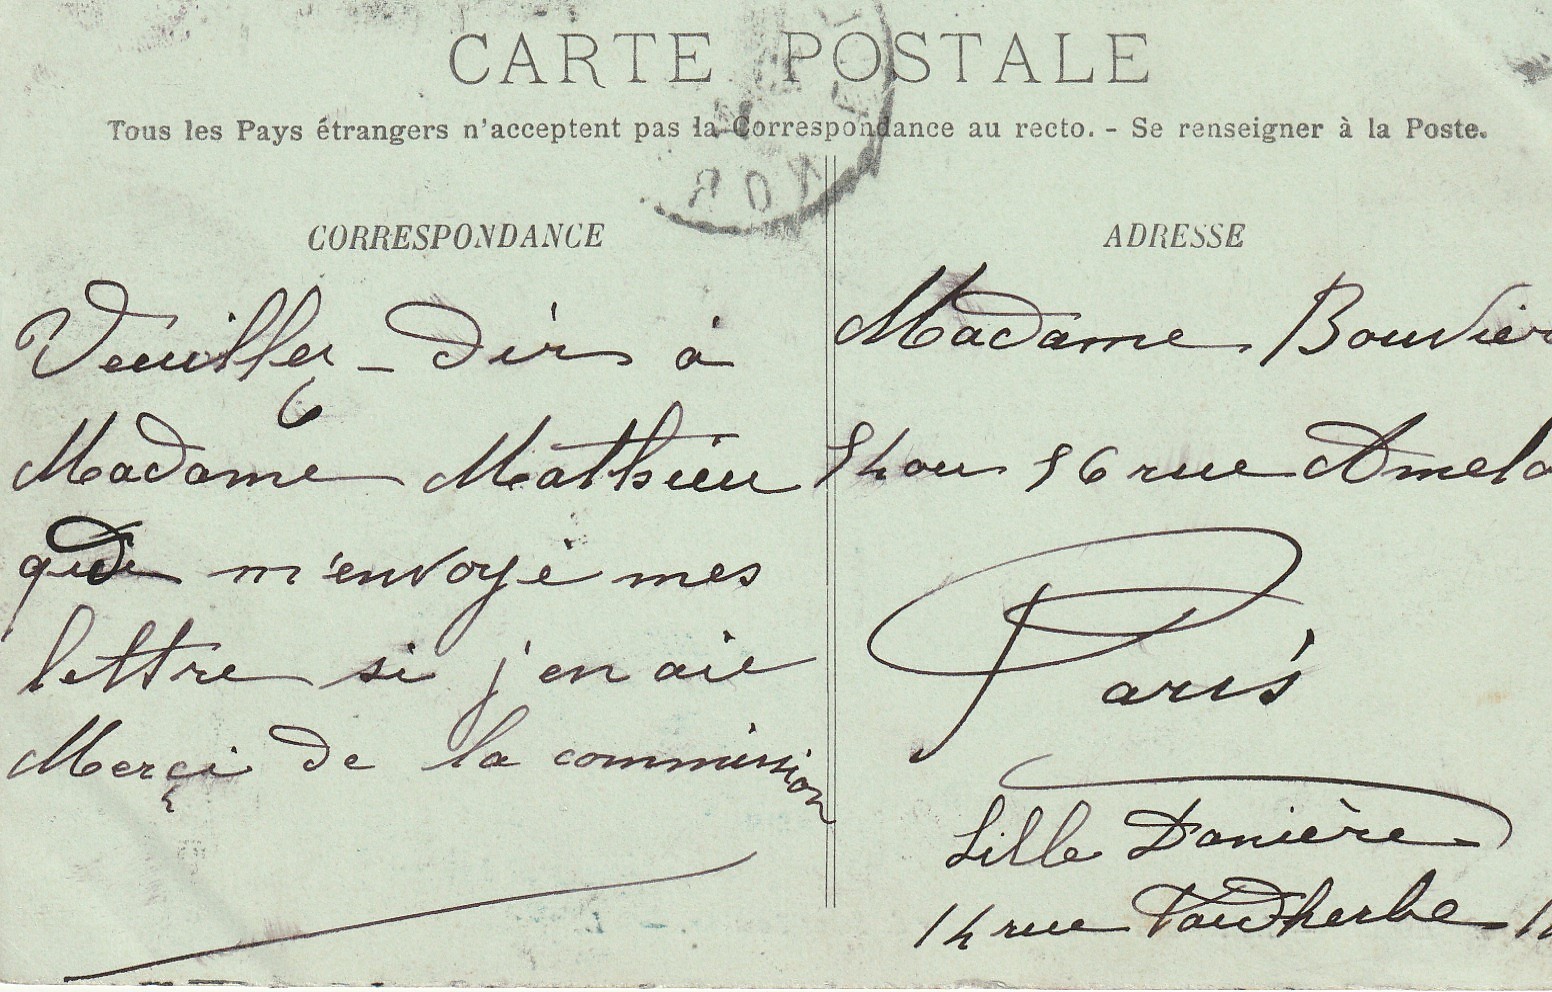 CARTE POSTALE
Tous les Pays étrangers n'acceptent pas la Correspondance au recto. - Se renseigner à la Poste.
CORRESPONDANCE
Veuillez - dir à
Madame Mathieu
m'envoyé mes
lettre si j'en aie
Merçi de la commission
ADRESSE
Madame Bouvier
54 ou 56 rue Amelo
Paris
Lille
14 rue Faidherbe 14
NOR